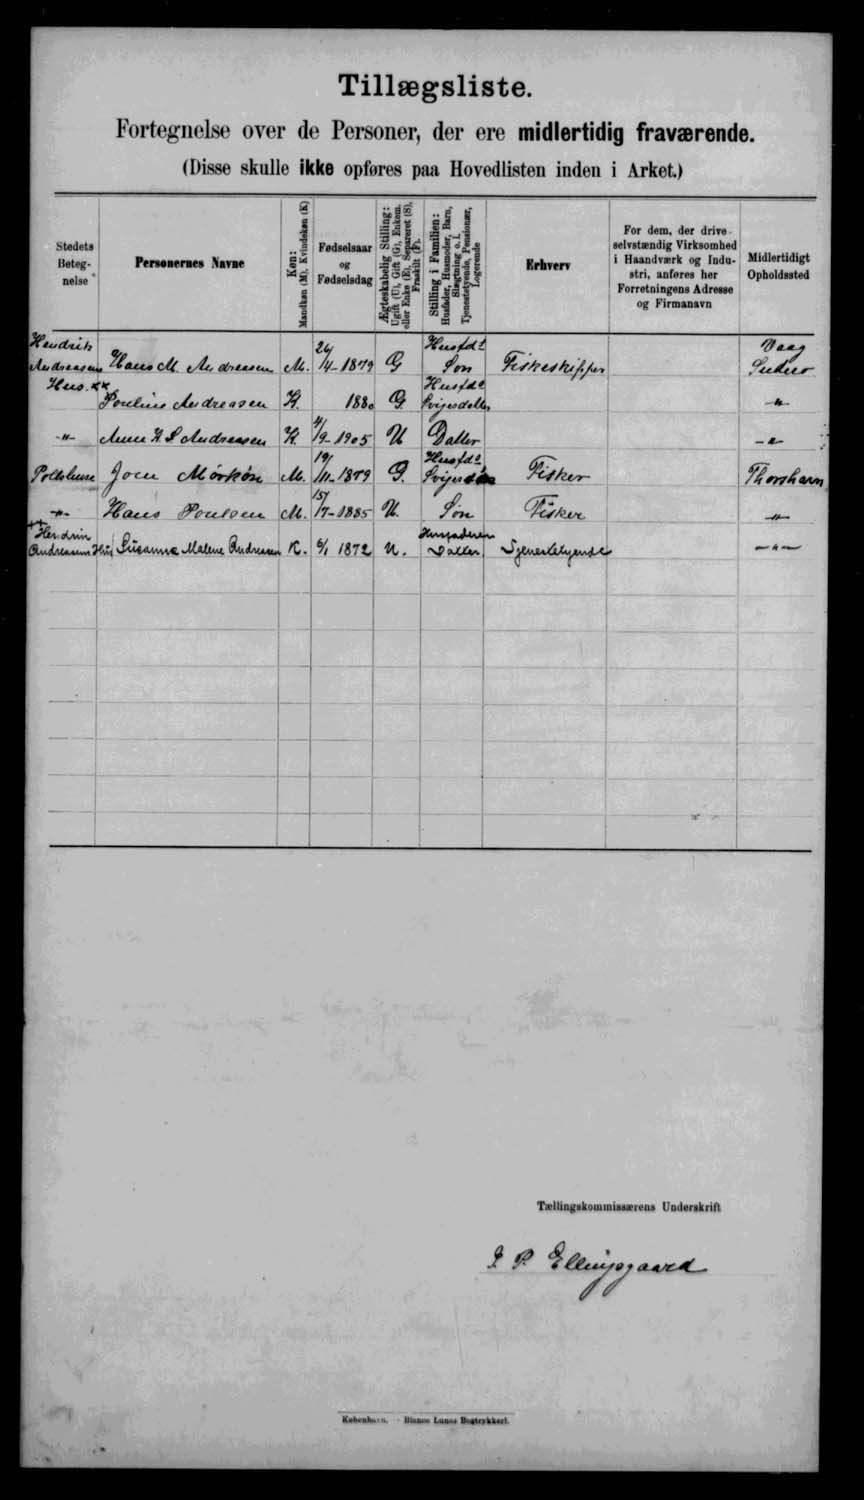 Tillægsliste.
Fortegnelse over de Personer, der ere midlertidig fraværende.
(Disse skulle ikke opføres paa Hovedlisten inden i Arket.)
Stedets Betegnelse
Personernes Navne
Køn: Mandkøn (M), Kvindekøn (K)
Fødselsaar og Fødselsdag
Ægteskabelig Stilling: Ugift (U), Gift (G), Enkem. eller Enke (E), Separeret (S), Fraskilt (F).
Stilling i Familien: Husfader, Husmoder, Barn, Slægtning o. l. Tjenestetyende, Pensionær, Logerende
Erhverv
For dem, der drive selvstændig Virksomhed i Haandværk og Industri, anføres her Forretningens Adresse og Firmanavn
Midlertidigt Opholdssted
Hendrik Andreasens Hus. ×× Hans M. Andreasen M. 26/4-1879 G Husfds Søn Fiskeskipper Vaag Suderø
Pouline Andreasen K. 1880 G. Husfds Svigerdatter -"-
-"- Anne K S Andreasen K 4/9-1905 U Datter -"-
Joen Mørkøre M. 19/11-1879 G. Husfds Fisker Thorshavn
-"- Hans Poulsen M. 15/7-1885 U. Søn Fisker -"-
×× Andreasens Hus Susanne Malene Andreasen K. 6/1 1872 U. Husfaderens Datter. Tjenestetyende -"-
Tællingskommissærens Underskrift
P. Ellingsgaard
København. - Bianco Lunos Bogtrykkeri.